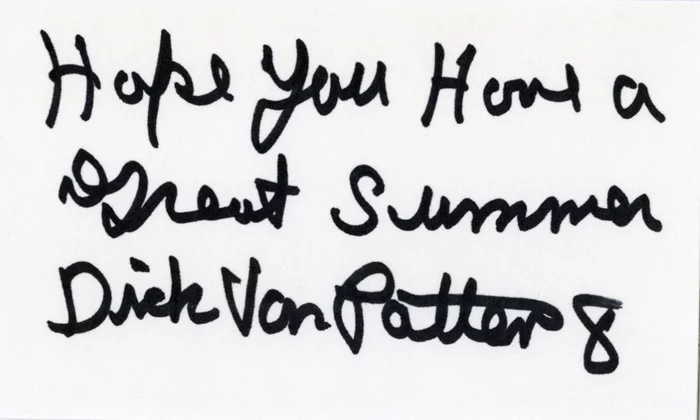 Hope You Have a
Great Summer
Dick Van Patten 8